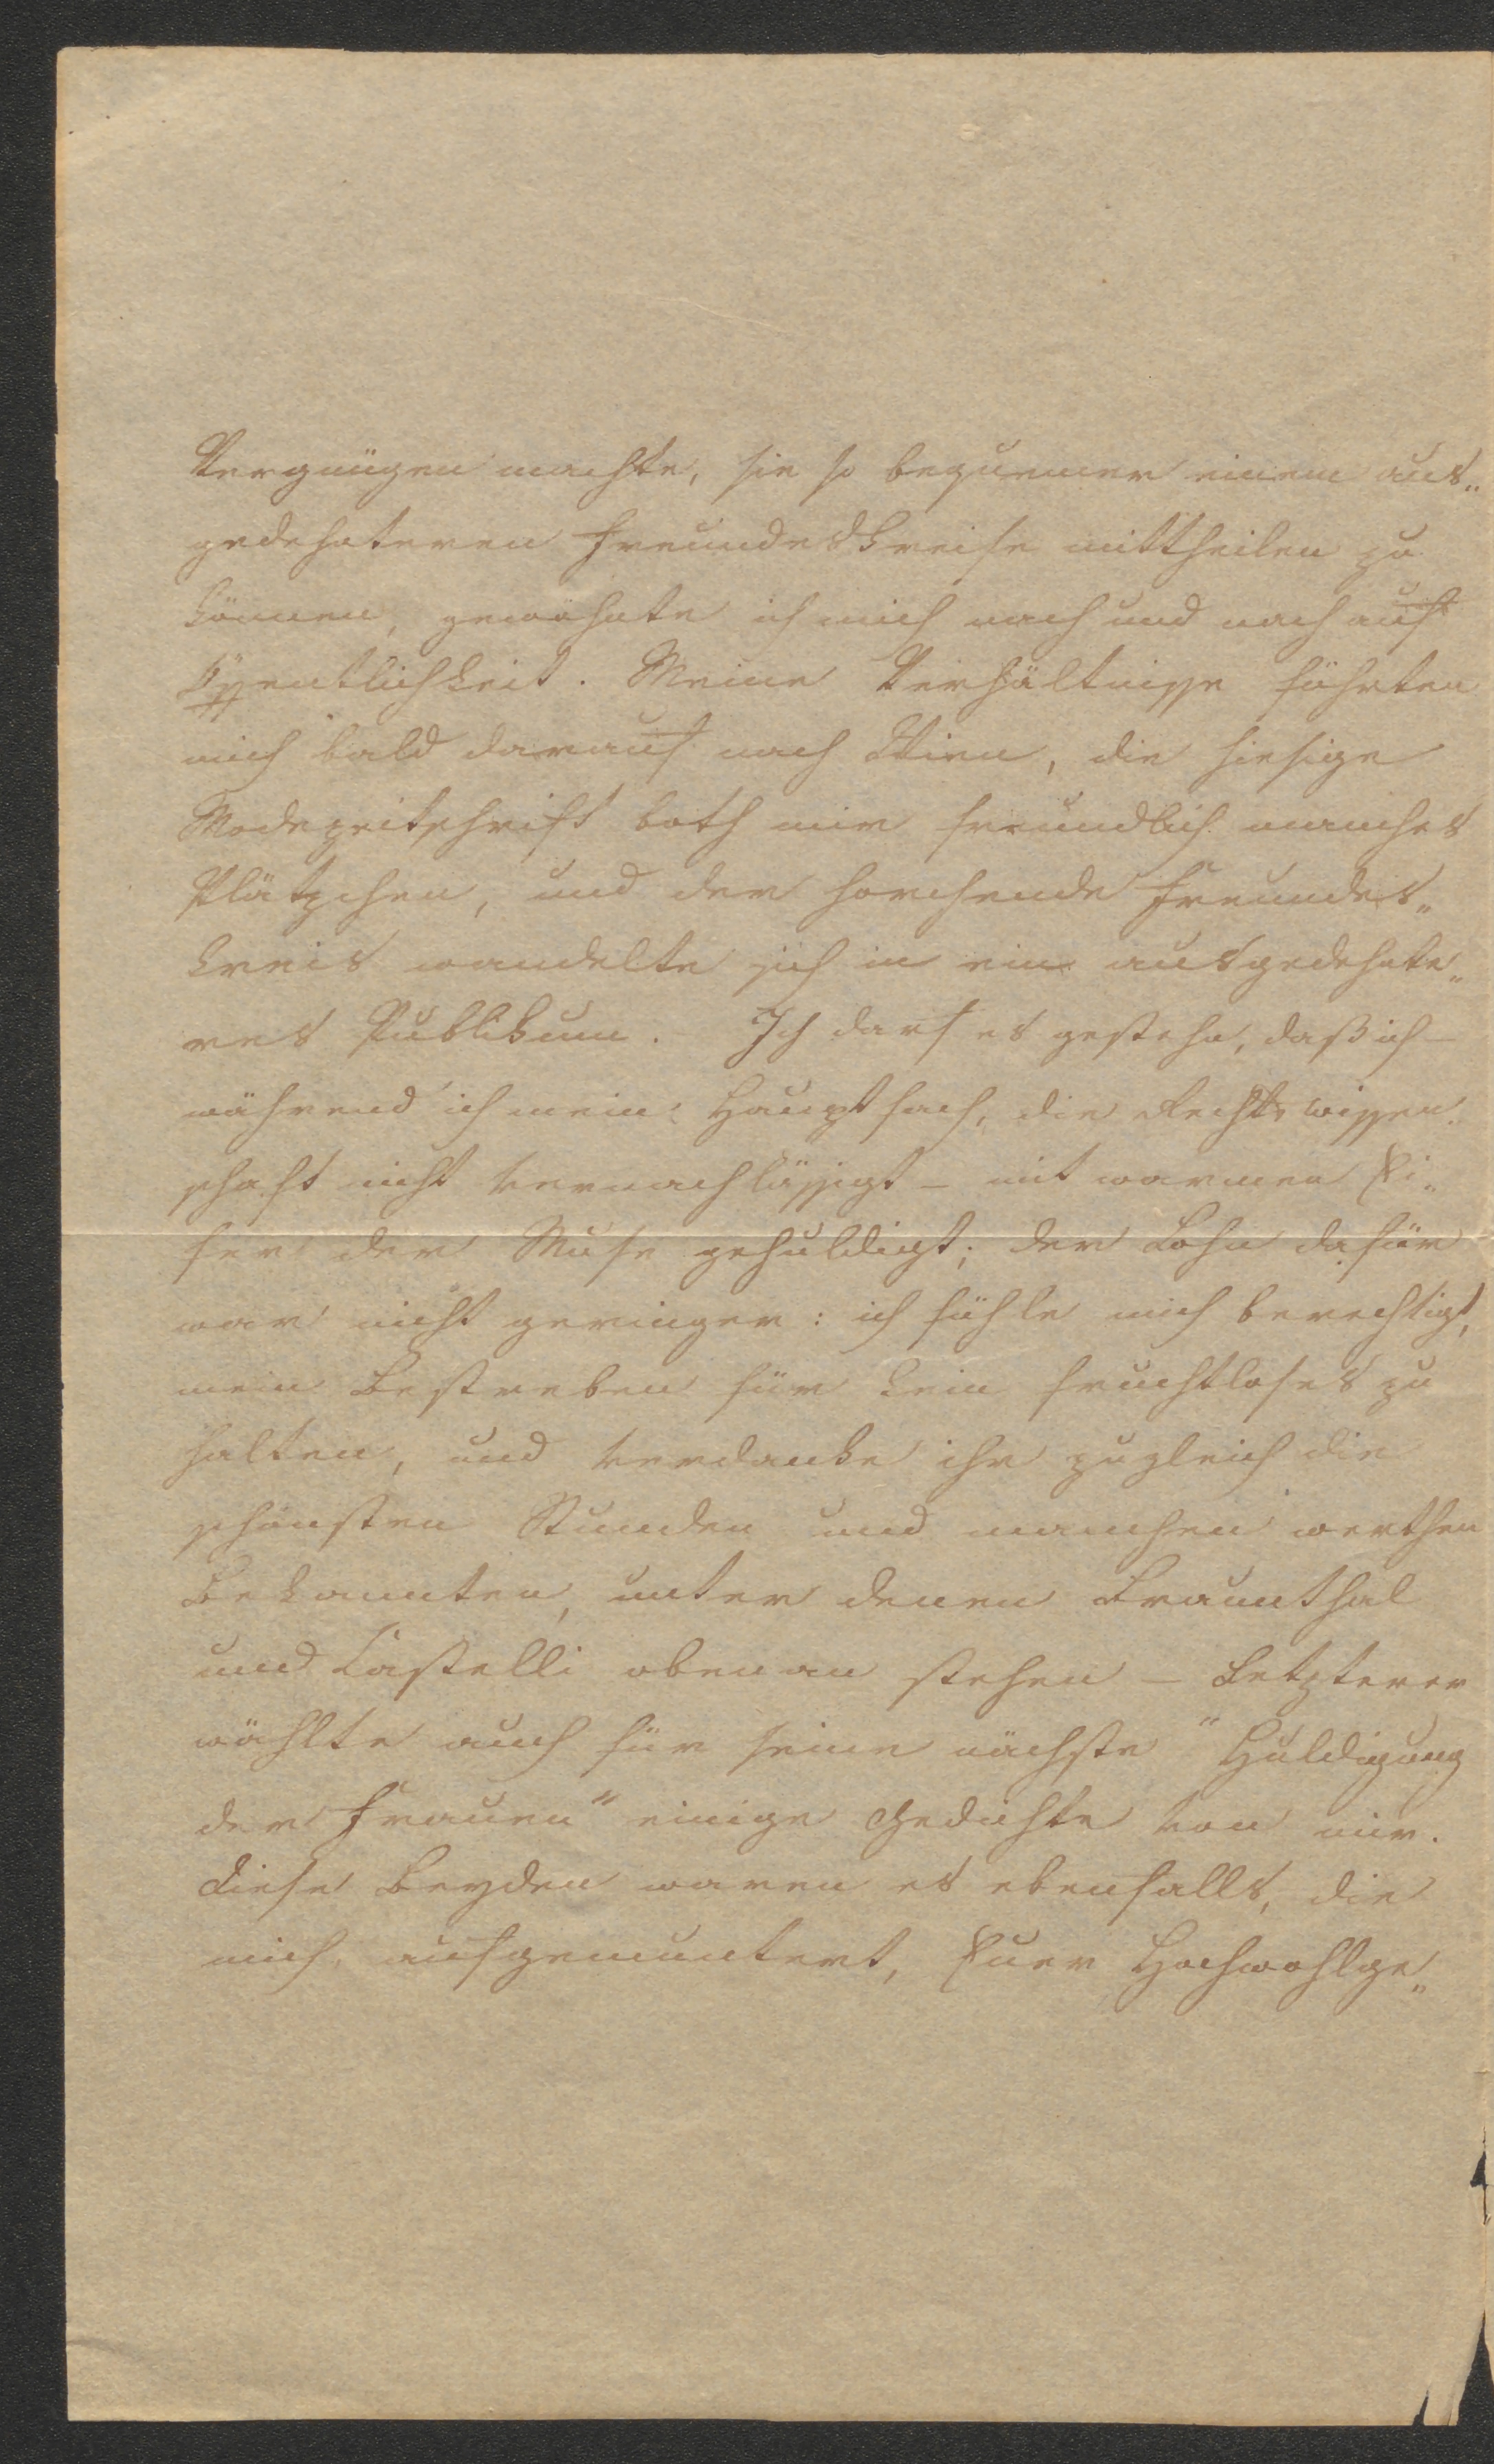 Vergnügen machte, sie so bequemer einem aus„
gedehnteren Freundeskreise mittheilen zu
können, gewöhnte ich mich nach und nach auf
Öffentlichkeit. Meine Verhältnisse führten
mich bald darauf nach Wien, die hiesige
Modezeitschrift both mir freundlich manches
Plätzchen, und der horchende Freundes„
kreis wandelte sich in ein ausgedehnte„
res Publikum. Ich darf es gestehn, daß ich –
während ich mein Hauptfach, die Rechtswissen„
schaft nicht vernachlässigt – mit warmen Ei„
fer der Muse gehuldigt; der Lohn dafür
war nicht geringer: ich fühle mich berechtigt,
mein Bestreben für kein fruchtloses zu
halten, und verdanke ihr zugleich die
schönsten Stunden und manchen werthen
Bekannten, unter denen Braunthal
und Castelli obenan stehen – Letzterer
wählte auch für seine nächste "Huldigung
der Frauen" einige Gedichte von mir.
Diese Beyden waren es ebenfalls, die
mich aufgemuntert, Euer Hochwohlge„